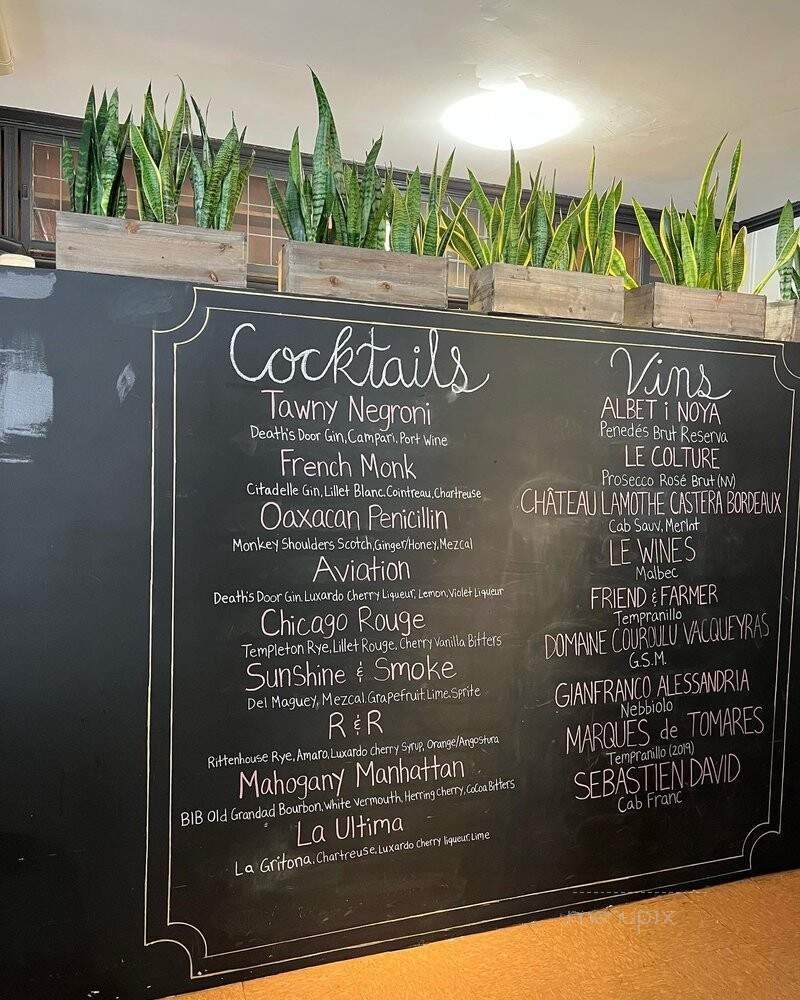 Cocktails
Tawny Negroni
Death's Door Gin, Campari, Port Wine
French Monk
Citadelle Gin, Lillet Blanc, Cointreau, Chartreuse
Oaxacan Penicillin
Monkey Shoulders Scotch, Ginger/Honey, Mezcal
Aviation
Death's Door Gin, Luxardo Cherry Liqueur, Lemon, Violet Liqueur
Chicago Rouge
Templeton Rye, Lillet Rouge, Cherry Vanilla Bitters
Sunshine & Smoke
Del Maguey, Mezcal, Grapefruit, Lime, Sprite
R & R
Rittenhouse Rye, Amaro, Luxardo cherry Syrup, Orange/Angostura
Mahogany Manhattan
BIB Old Grandad Bourbon, White Vermouth, Herring Cherry, CoCoa Bitters
La Ultima
La Gritona, Chartreuse, Luxardo Cherry liqueur, Lime
Vins
ALBET i NOYA
Penedés Brut Reserva
LE COLTURE
Prosecco Rosé Brut (NV)
CHÂTEAU LAMOTHE CASTERA BORDEAUX
Cab Sauv, Merlot
LE WINES
Malbec
FRIEND & FARMER
Tempranillo
DOMAINE COUROULU VACQUEYRAS
G.S.M.
GIANFRANCO ALESSANDRIA
Nebbiolo
MARQUES de TOMARES
Tempranillo (2019)
SEBASTIEN DAVID
Cab Franc
menupix